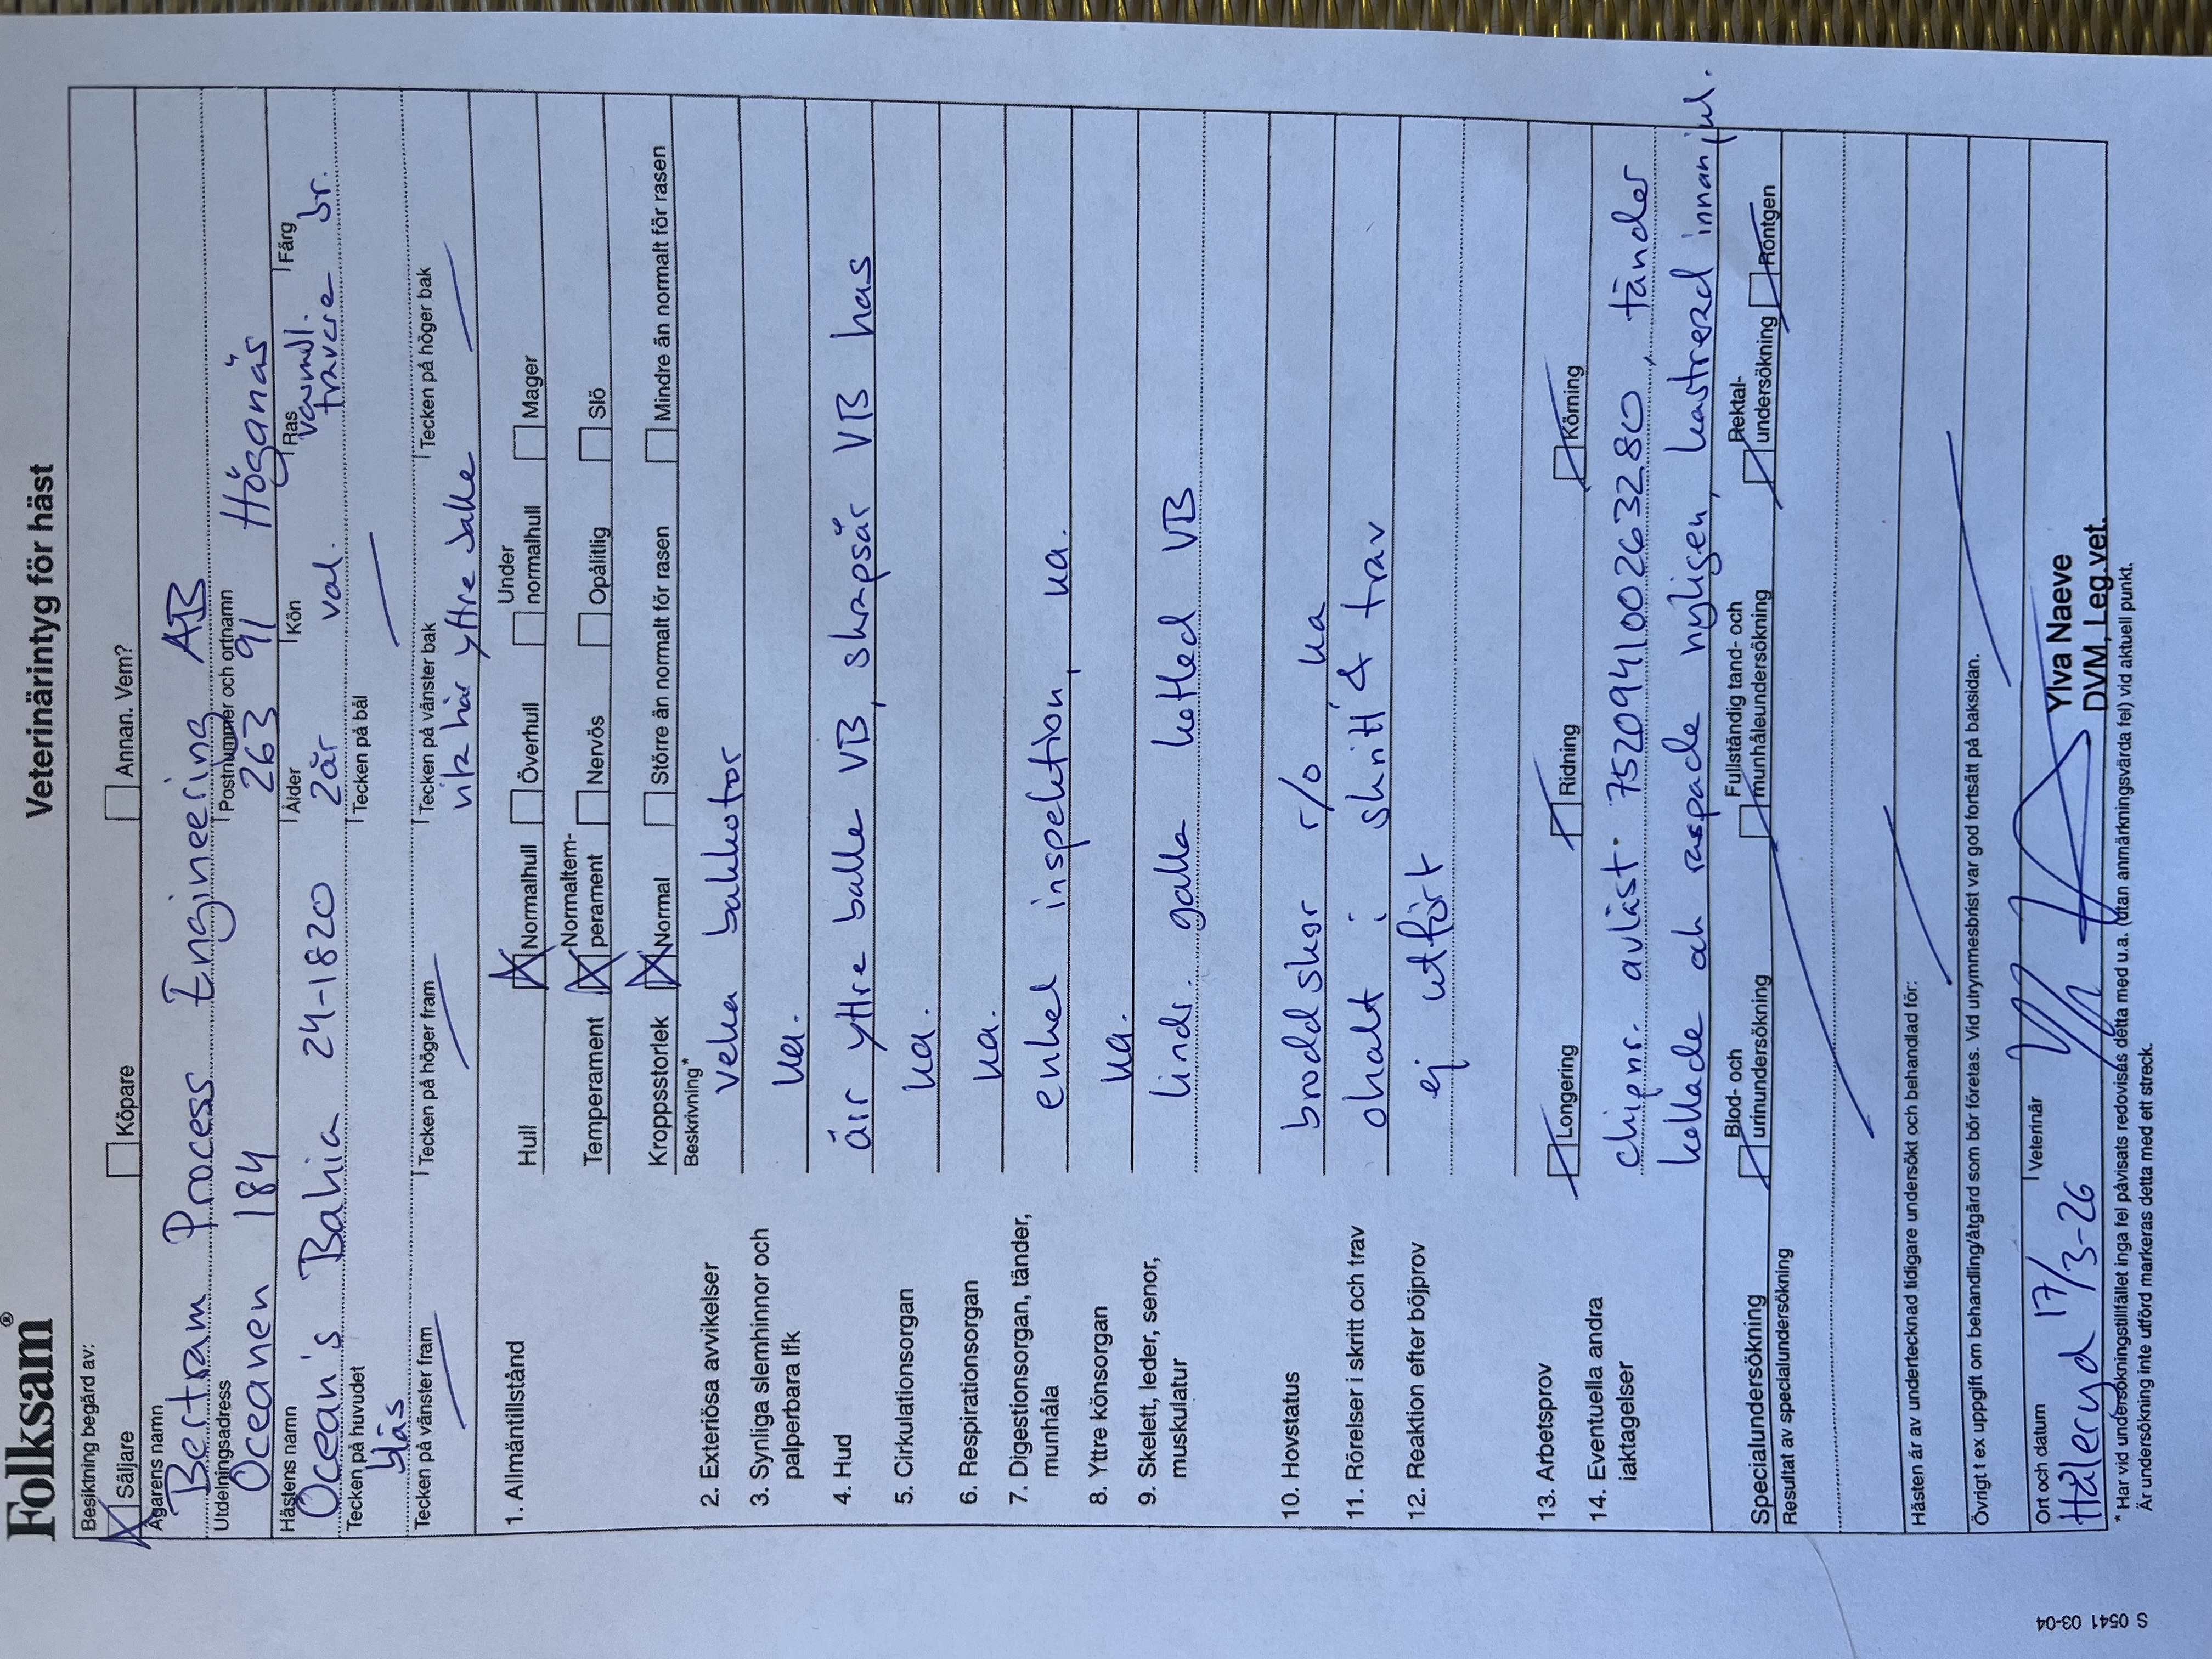 Folksam®
Veterinärintyg för häst
Besiktning begärd av:
Säljare Köpare Annan. Vem?
Ägarens namn
Bertram Process Engineering AB
Utdelningsadress Postnummer och ortnamn
Oceanen 184 263 91 Höganäs
Hästens namn Ålder Kön Ras Färg
Ocean's Bahia 24-1820 2år val. varmbl. travare br.
Tecken på huvudet Tecken på bål
bläs
Tecken på vänster fram Tecken på höger fram Tecken på vänster bak Tecken på höger bak
vit här yttre balle
1. Allmäntillstånd Hull Normalhull Överhull Under normalhull Mager
Temperament Normaltemperament Nervös Opålitlig Slö
Kroppsstorlek Normal Större än normalt för rasen Mindre än normalt för rasen
Beskrivning*
2. Exteriösa avvikelser veka bakkotor
3. Synliga slemhinnor och
palperbara lfk ua.
4. Hud ärr yttre balle VB, skrapsår VB has
5. Cirkulationsorgan ua.
6. Respirationsorgan ua.
7. Digestionsorgan, tänder,
munhåla enkel inspektion, ua.
8. Yttre könsorgan ua.
9. Skelett, leder, senor,
muskulatur lindr. galla kotled VB
10. Hovstatus broddskor r/o ua
11. Rörelser i skritt och trav ohalt i skritt & trav
12. Reaktion efter böjprov ej utfört
13. Arbetsprov Longering Ridning Körning
14. Eventuella andra
iaktagelser chipnr. avläst: 752094100263280, tänder
kollade och raspade nyligen, kastrerad innan jul.
Specialundersökning Blod- och urinundersökning Fullständig tand- och munhåleundersökning Rektal- undersökning Röntgen
Resultat av specialundersökning
Hästen är av undertecknad tidigare undersökt och behandlad för:
Övrigt t ex uppgift om behandling/åtgärd som bör företas. Vid utrymmesbrist var god fortsätt på baksidan.
Ort och datum Veterinär
Håleryd 17/3-26
Ylva Naeve
DVM, Leg.vet.
* Har vid undersökningstillfället inga fel påvisats redovisas detta med u.a. (utan anmärkningsvärda fel) vid aktuell punkt.
Är undersökning inte utförd markeras detta med ett streck.
S 0541 03-04